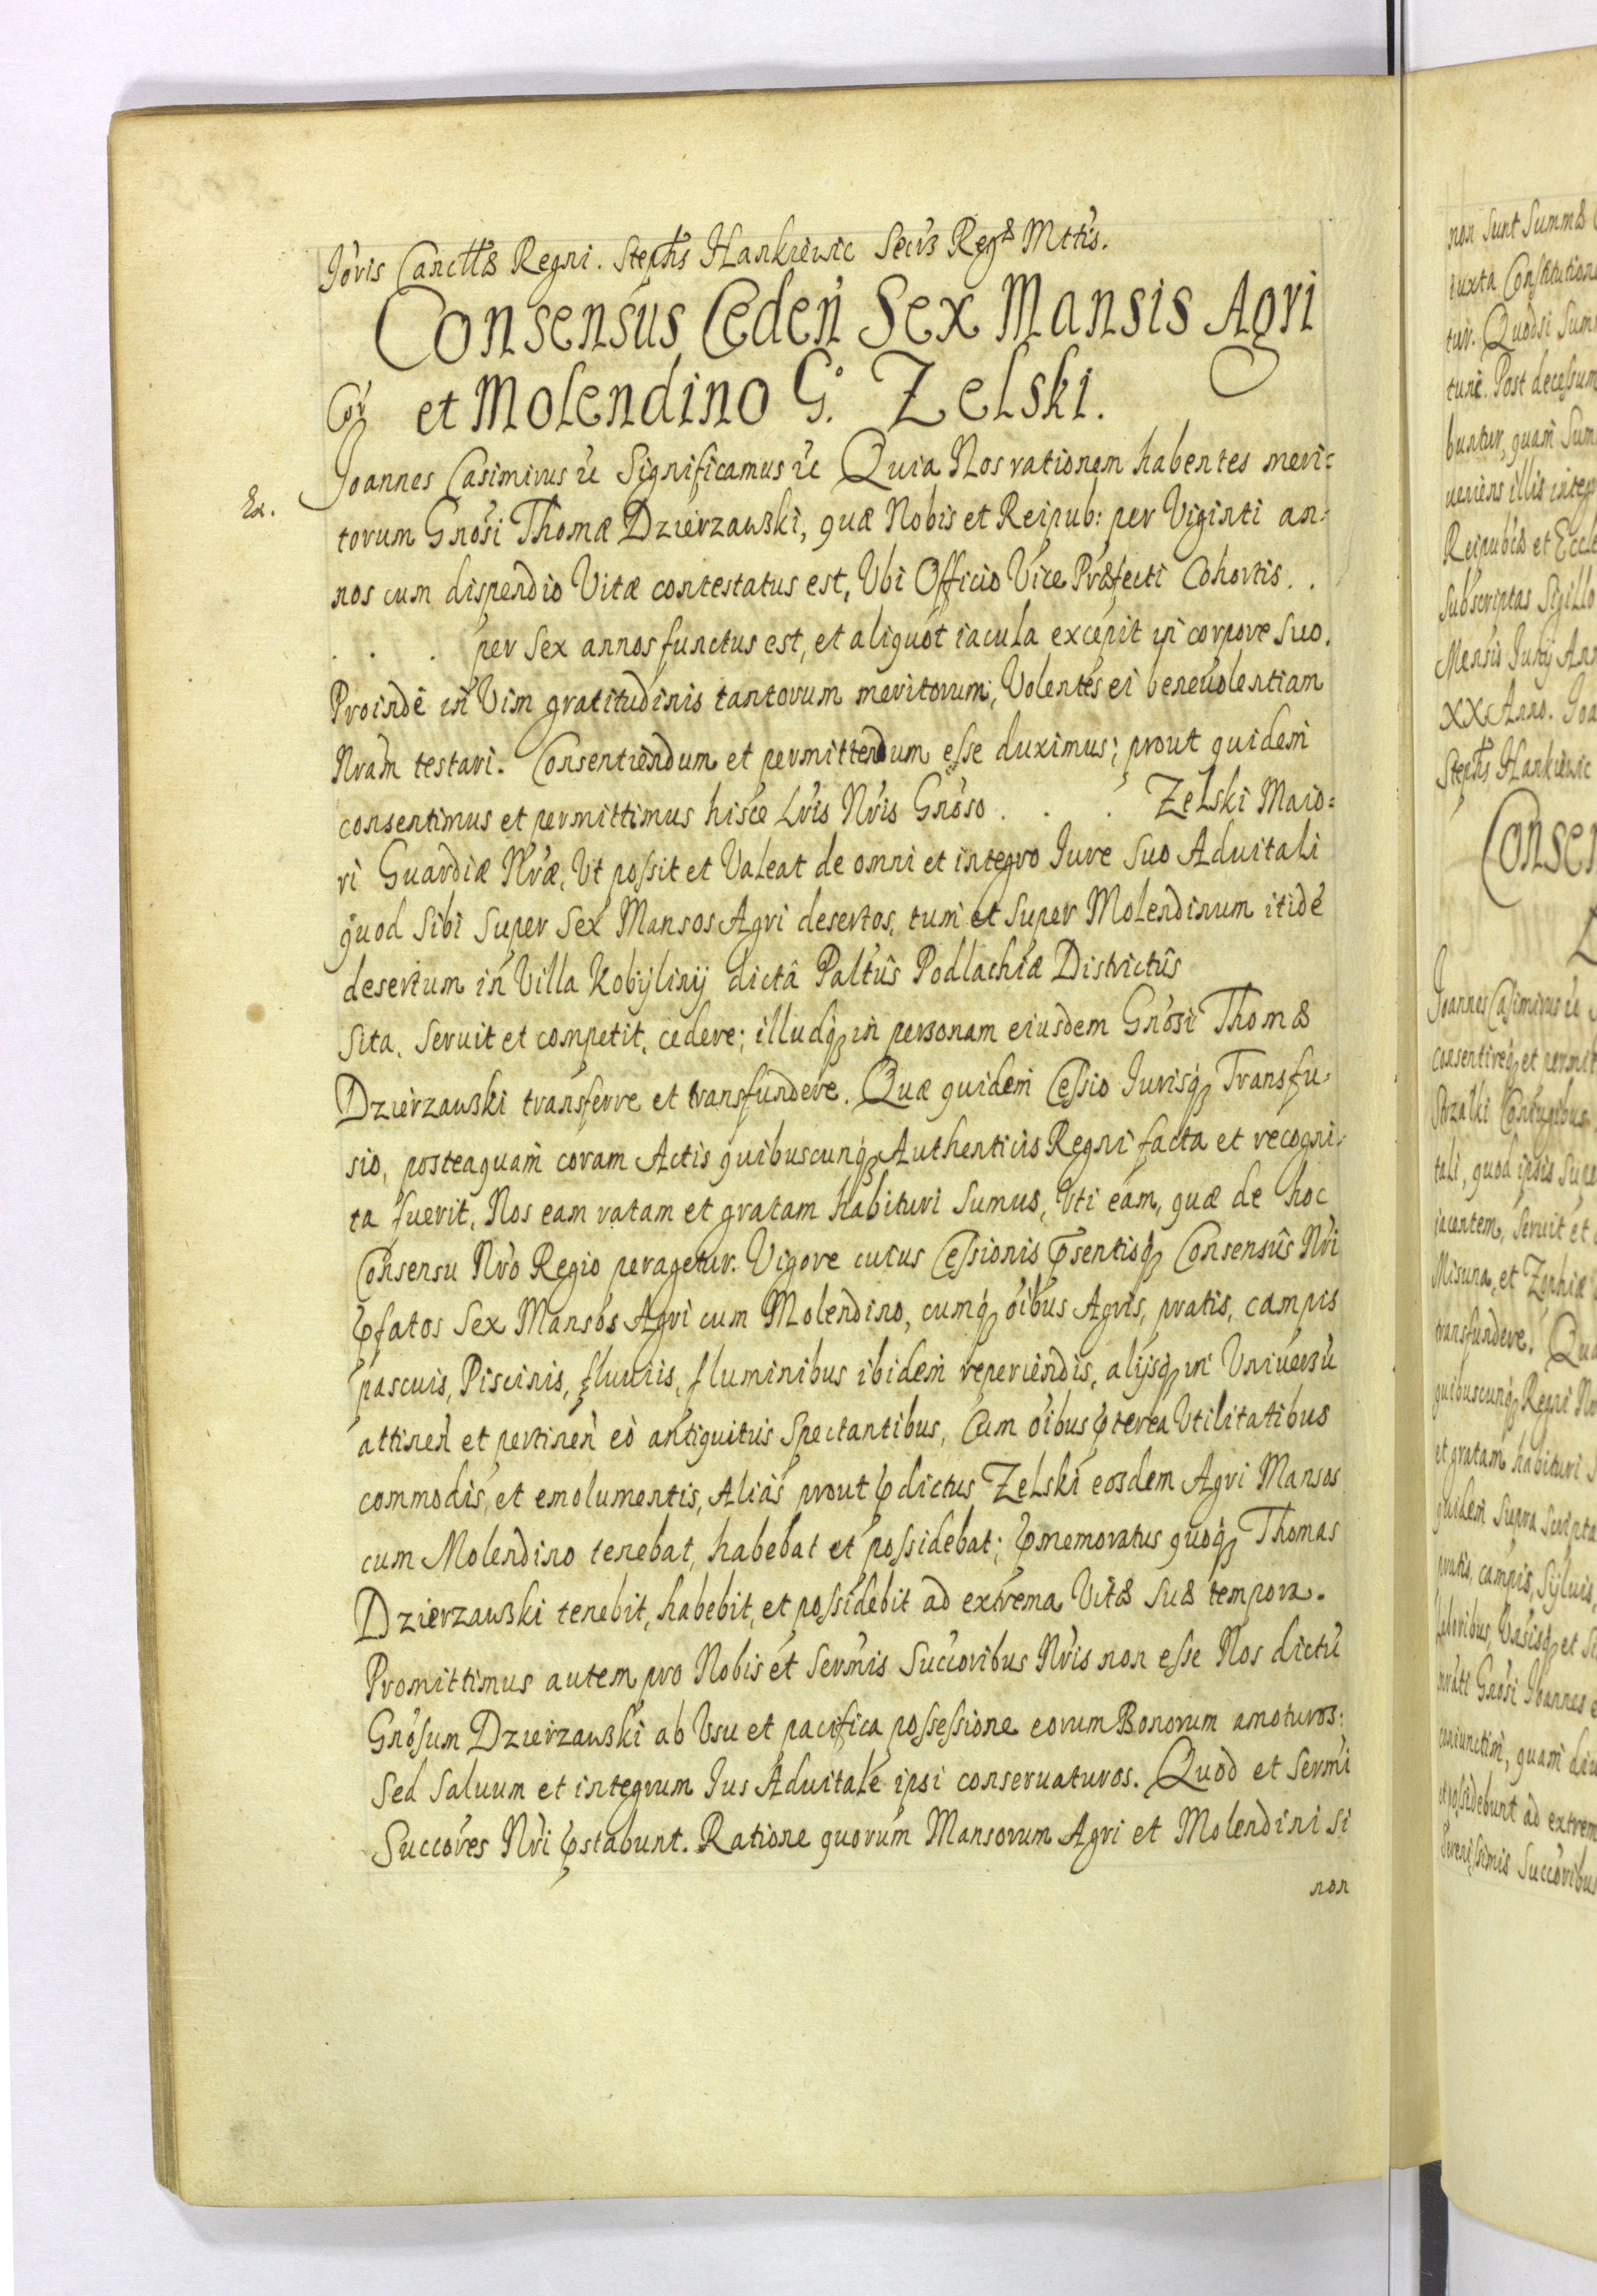 Joris Cancttæ Regni. Stephs Hankiewic Secrs Regæ Mttis.
Consensus Ceden Sex Mansis Agri
Cor et Molendino G. Zelski.
Joannes Casimirus &c Significamus &c Quia Nos rationem habentes meri=
Ex.
torum Gnosi Thomæ Dzierzawski, quæ Nobis et Reipub: per Viginti an=
nos cum dispendio Vitæ contestatus est, Ubi Officio Vice Præfecti Cohortis . .
. . . per Sex annos functus est, et aliquot iacula excepit in corpore Suo.
Proinde in Vim gratitudinis tantorum meritorum, Volentes ei beneuolentiam
Nram testari. Consentiendum et permittendum esse duximus; prout quidem
consentimus et permittimus hisce Lris Nris Gnoso . . . Zelski Maio=
ri Guardiæ Nræ, Ut possit et Valeat de omni et integro Jure Suo Aduitali
quod Sibi Super Sex Mansos Agri desertos, tum et Super Molendinum itide
desertum in Villa Kobijlinij dictâ Paltûs Podlachiæ Districtûs
Sita, Seruit et competit, cedere; illudq in personam eiusdem Gnosi Thomæ
Dzierzawski transferre et transfundere. Quæ quidem Cessio Jurisq Transfu=
sio, posteaquam coram Actis quibuscunq Authenticis Regni facta et recogni=
ta fuerit, Nos eam ratam et gratam habituri Sumus, Uti eam, quæ de hoc
Consensu Nro Regio peragetur. Vigore cuius Cessionis psentisq Consensûs Nri
pfatos Sex Mansos Agri cum Molendino, cumq oibus Agris, pratis, campis
pascuis, Piscinis, fluuiis, fluminibus ibidem reperiendis, alijsq in Uniuersu
attinen et pertinen eò antiquitus Spectantibus, Cum oibus pterea Utilitatibus
commodis, et emolumentis, Alias prout pdictus Zelski eosdem Agri Mansos
cum Molendino tenebat, habebat et possidebat; pmemoratus quoq Thomas
Dzierzawski tenebit, habebit, et possidebit ad extrema Vitæ Suæ tempora.
Promittimus autem pro Nobis et Sermis Succoribus Nris non esse Nos dictu
Gnosum Dzierzawski ab Usu et pacifica possessione eorum Bonorum amoturos:
Sed Saluum et integrum Jus Aduitale ipsi conseruaturos. Quod et Sermi
Succores Nri pstabunt. Ratione quorum Mansorum Agri et Molendini Si
non
non Sunt Summæ
iuxta Constitution
tur. Quodsi Sum
tune. Post decessum
buntur, quam Sum
ueniens illis integ
Reipubcæ et Eccle
Subscriptas Sigillo
Mensis Julij An
XX Anno. Joa
Stephs Hankiewic
Conse
Joannes Casimirus &c
consentireq et permit
Coniugibus
tali, quod ipsis Supe
iacentem, Seruit et
Misuna, et Zophiæ
transfundere. Qua
quibuscunq Regni No
et gratam habituri S
quidem Supra Scripta
pratis, campis, Syluis,
Gnosi Joannes e
coniunctim, quam diu
et possidebunt ad extrem
Serenissimis Succoribus